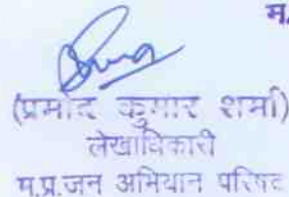 म.
(प्रमोद कुमार शर्मा)
लेखाधिकारी
म.प्र.जन अभियान परिषद